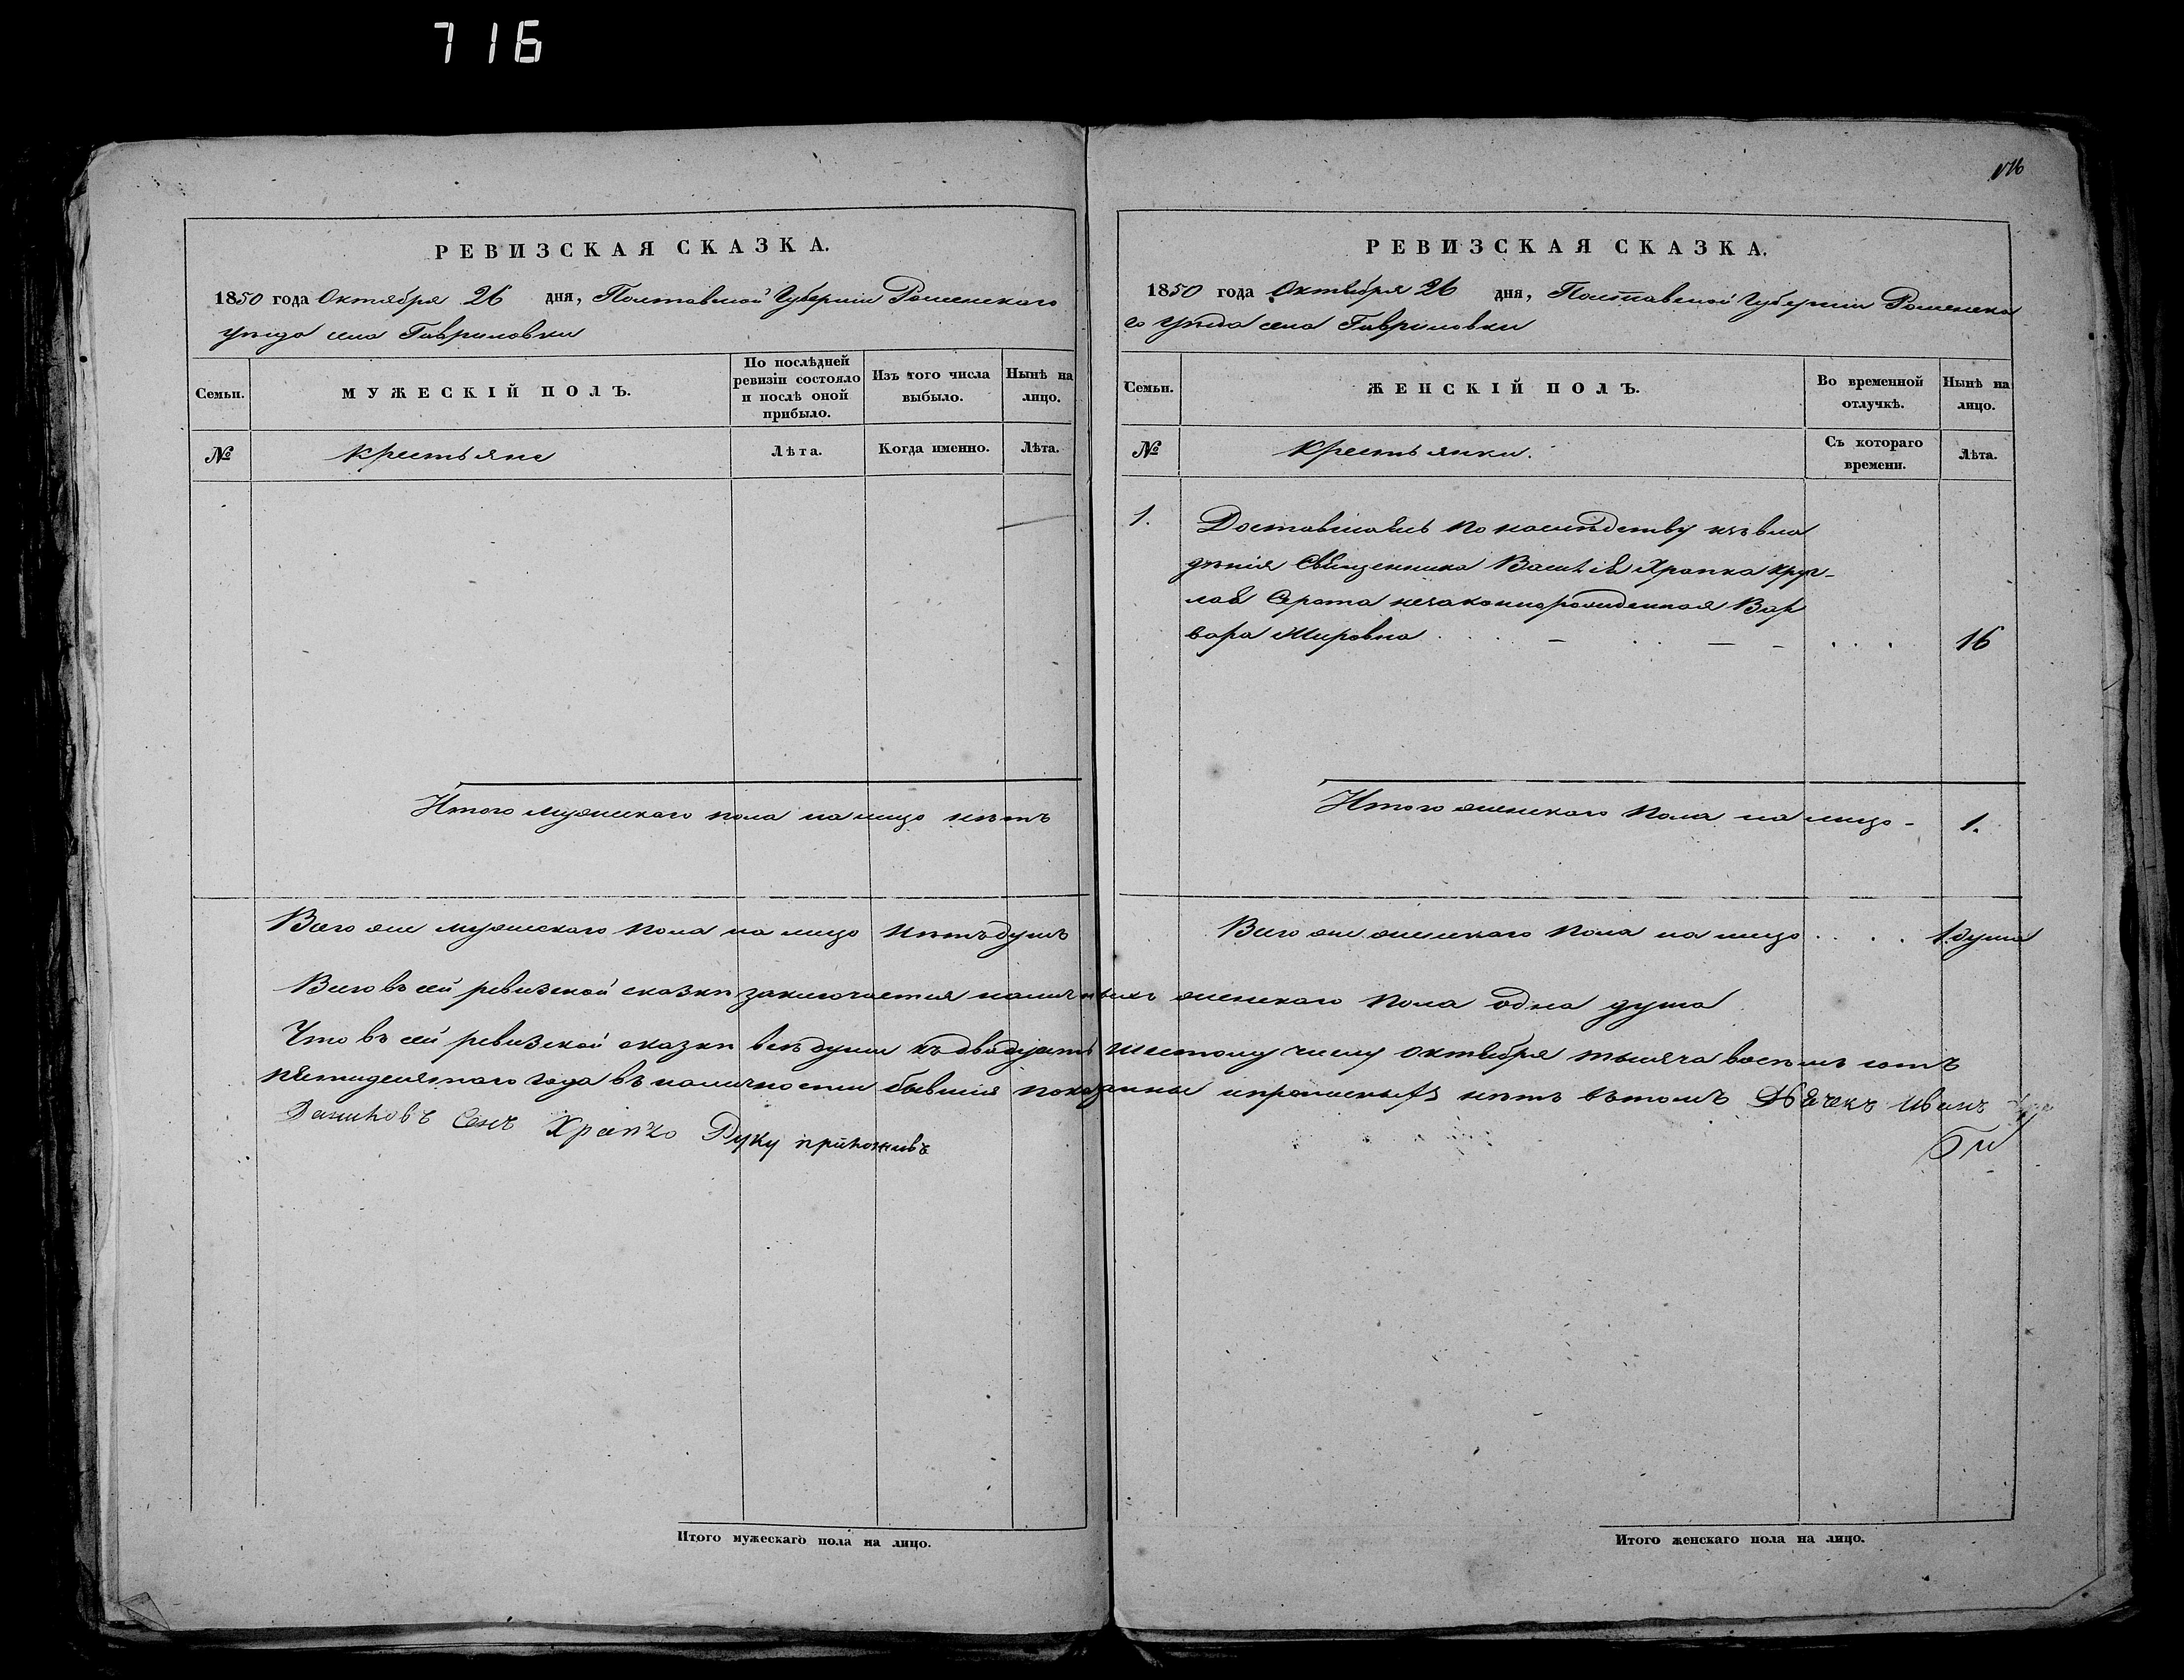 716
РЕВИЗСКАЯ СКАЗКА.
1850 года Октября 26 дня, Полтавской Губернии Роменскаго
уѣзда села Гавриловки
Семьи.
МУЖЕСКІЙ ПОЛЪ.
По послѣдней ревизіи состояло и послѣ оной прибыло.
Изъ того числа выбыло.
Нынѣ на лицо.
№
крестьяне
Лѣта.
Когда именно.
Лѣта.
Итого мужескаго пола на лицо нѣтъ
Всего же мужескаго пола на лицо нѣтъ душъ
РЕВИЗСКАЯ СКАЗКА.
1850 года Октября 26 дня, Полтавской Губернии Роменска
го уѣзда села Гавриловки
Семьи.
ЖЕНСКІЙ ПОЛЪ.
Во временной отлучкѣ.
Нынѣ на лицо.
№
крестьянки.
Съ котораго времени.
Лѣта.
1. Доставшаясь по наслѣдству изъ вла
дѣнія Священника Василія Храпка круг-
лая Сирота незаконнорожденная Вар
вара 16
Итого женскаго пола на лицо - 1.
Всего же женскаго пола на лицо . . . . 1 душа
Всего въ сей ревизской сказкѣ заключается наличныхъ женскаго пола одна душа
Что въ сей ревизской сказкѣ всѣ души къ двадцать шестому числу октября тысяча восемь сотъ
пятидесятаго года въ наличности бывшія показанные и прописныхъ нѣтъ въ томъ Дячекъ Иванъ
Даниловъ Сынъ Храпко Руку приложивъ
Итого мужескаго пола на лицо.
Итого женскаго пола на лицо.